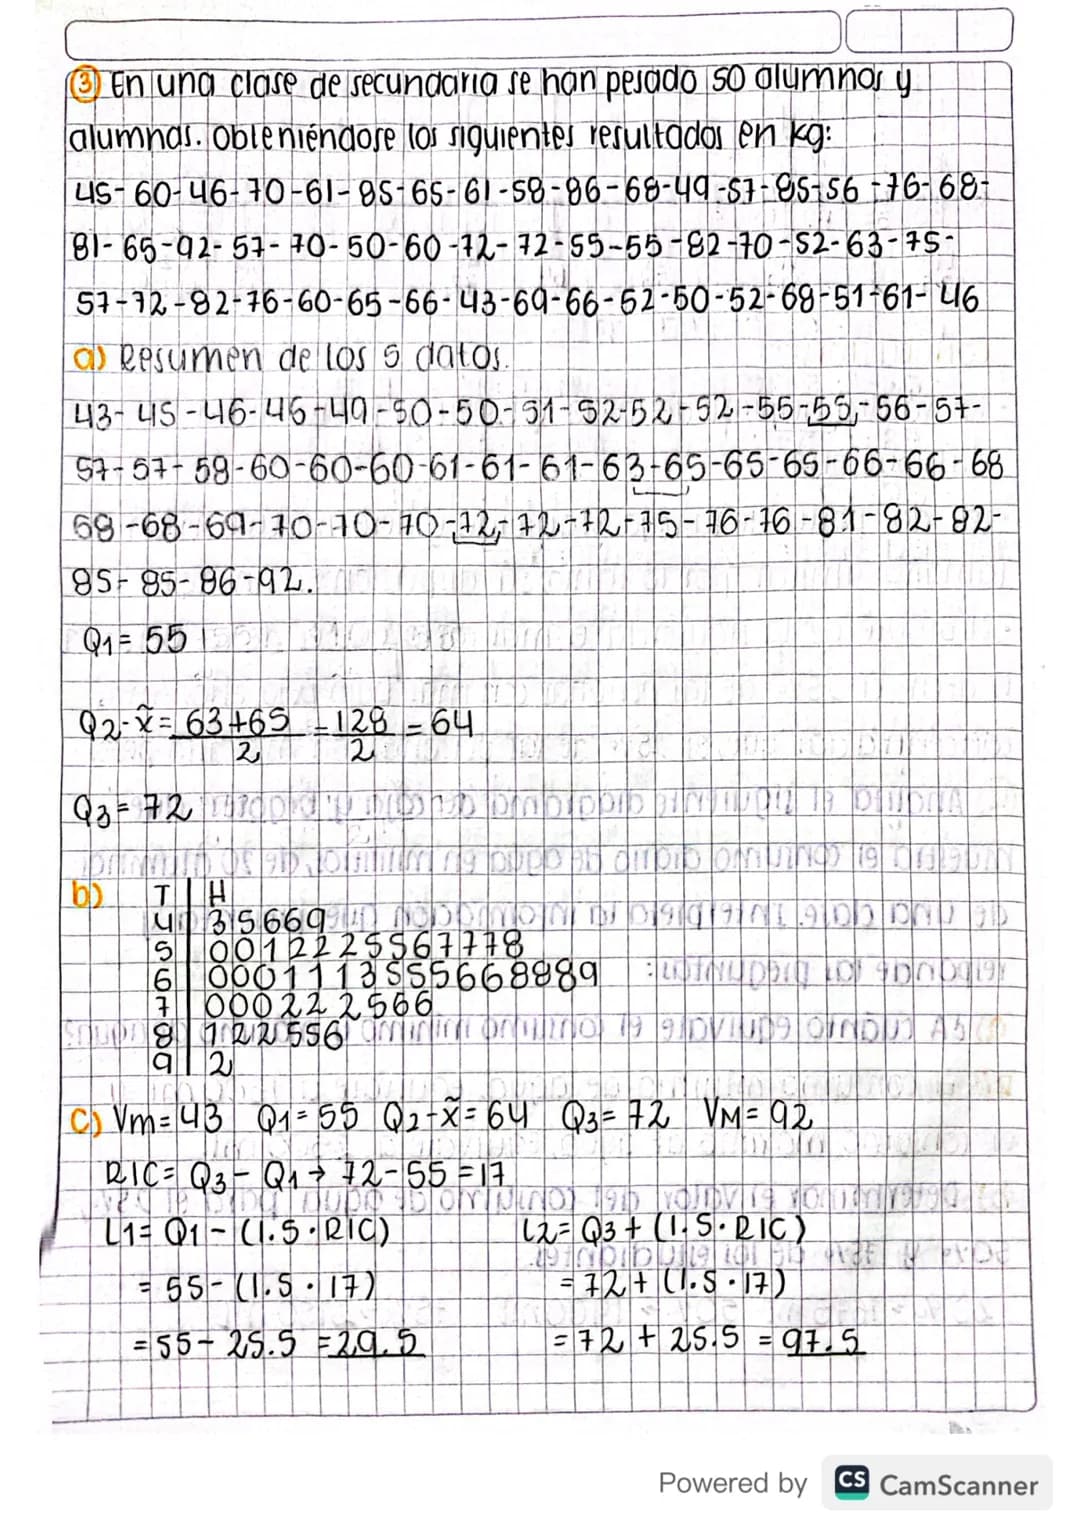 ③ En una clase de secundaria se han pesado 50 alumnos y
alumnas. Obteniéndose los siguientes resultados en kg:
45-60-46-70-61-85-65-61-58-86-68-49-57-85-56-76-68-
81-65-92-57-70-50-60-72-72-55-55-82-70-52-63-75-
57-72-82-76-60-65-66-43-69-66-52-50-52-68-51-61-46
a) Resumen de los 5 datos.
43-45-46-46-49-50-50-51-52-52-52-55-55-56-57-
57-57-58-60-60-60-61-61-61-63-65-65-65-66-66-68
68-68-69-70-70-70-72-72-72-75-76-76-81-82-82-
85-85-86-92.
Q1= 55
Q2-x̃= 63+65/2 = 128/2 = 64
Q3= 72
b) T | H
4 | 35669
5 | 0012225567778
6 | 0001113555668889
7 | 000222566
8 | 122556
9 | 2
c) Vm= 43 Q1= 55 Q2-x̃= 64 Q3= 72 VM= 92
RIC= Q3- Q1 → 72-55 =17
L1= Q1 - (1.5 · RIC) L2= Q3 + (1.5 · RIC)
= 55- (1.5 · 17) = 72+ (1.5 · 17)
= 55- 25.5 = 29.5 = 72 + 25.5 = 97.5
Powered by CS CamScanner